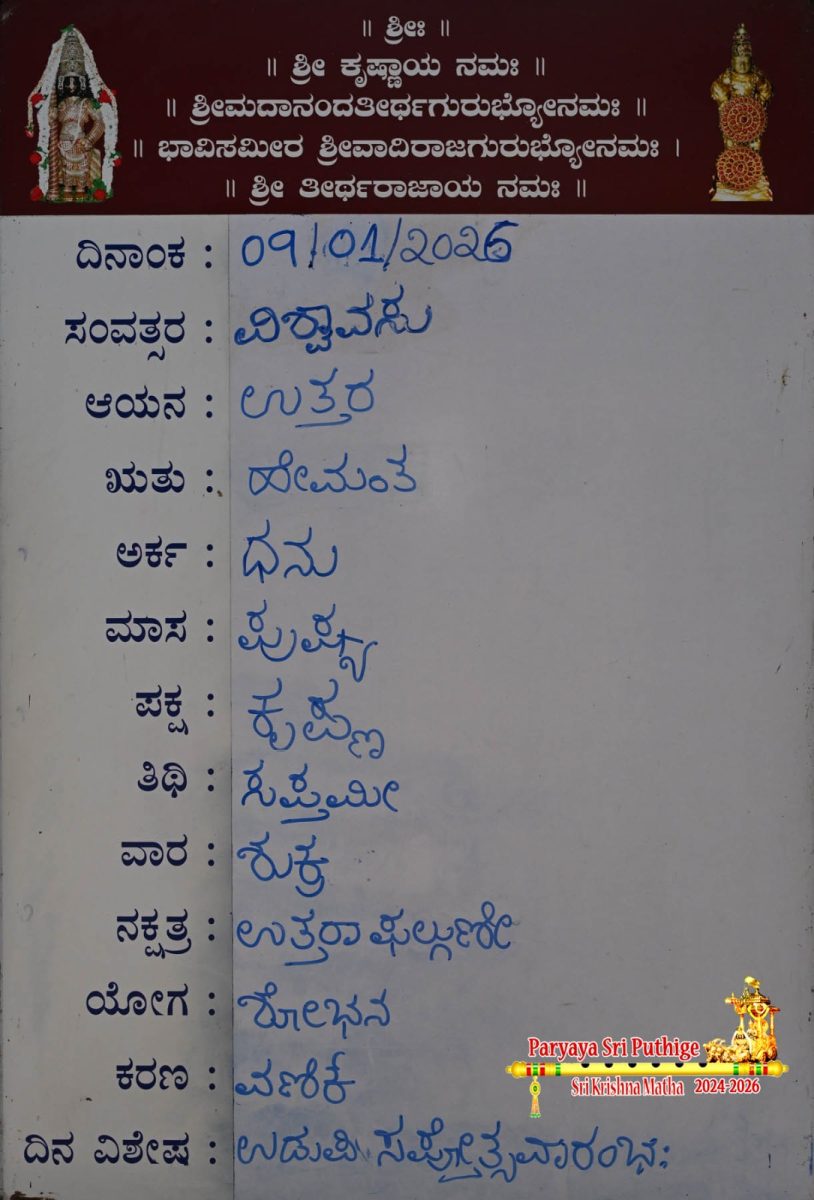 ॥ ಶ್ರೀಃ ॥
॥ ಶ್ರೀ ಕೃಷ್ಣಾಯ ನಮಃ ॥
॥ ಶ್ರೀಮದಾನಂದತೀರ್ಥಗುರುಭ್ಯೋನಮಃ ॥
॥ ಭಾವಿಸಮೀರ ಶ್ರೀವಾದಿರಾಜಗುರುಭ್ಯೋನಮಃ ।
॥ ಶ್ರೀ ತೀರ್ಥರಾಜಾಯ ನಮಃ ॥
ದಿನಾಂಕ : 09/01/2026
ಸಂವತ್ಸರ : ವಿಶ್ವಾವಸು
ಆಯನ : ಉತ್ತರ
ಋತು : ಹೇಮಂತ
ಅರ್ಕ : ಧನು
ಮಾಸ : ಪುಷ್ಯ
ಪಕ್ಷ : ಕೃಷ್ಣ
ತಿಥಿ : ಸಪ್ತಮೀ
ವಾರ : ಶುಕ್ರ
ನಕ್ಷತ್ರ : ಉತ್ತರಾ ಫಲ್ಗುಣೀ
ಯೋಗ : ಶೋಭನ
ಕರಣ : ವಣಿಕೆ
ದಿನ ವಿಶೇಷ : ಉಡುಪಿ ಸಪ್ತೋತ್ಸವಾರಂಭಃ
Paryaya Sri Puthige
Sri Krishna Matha 2024-2026